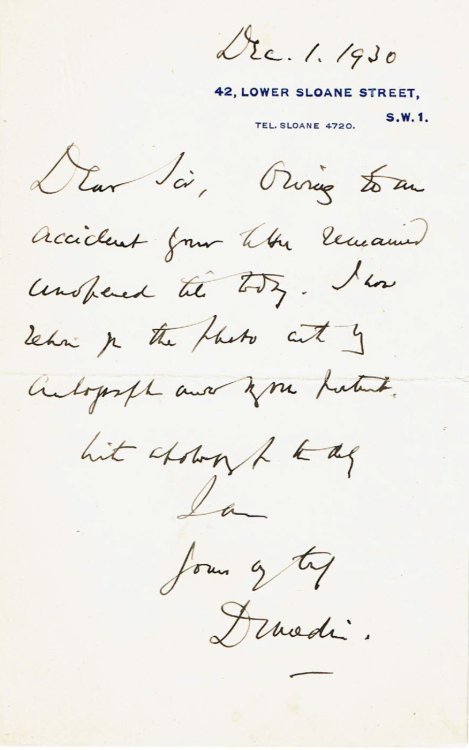 Dec. 1. 1930
42, LOWER SLOANE STREET,
S.W. 1.
TEL. SLOANE 4720.
Dear Sir, Owing to an
accident your letter remained
unopened till today. I now
return you the photo with my
autograph
With apology for the delay
I am
Yours very truly